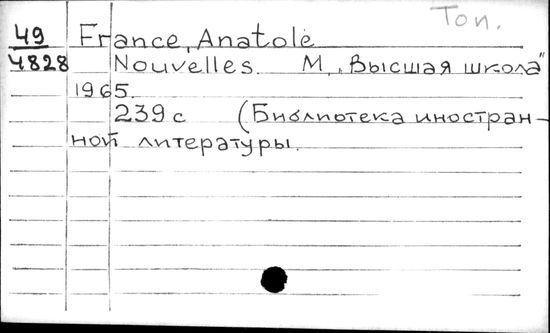 Топ.
49 France, Anatole
4828 Nouvelles. М., „Высшая школа"
1965.
239 с (Библиотека иностран-
ной литературы.